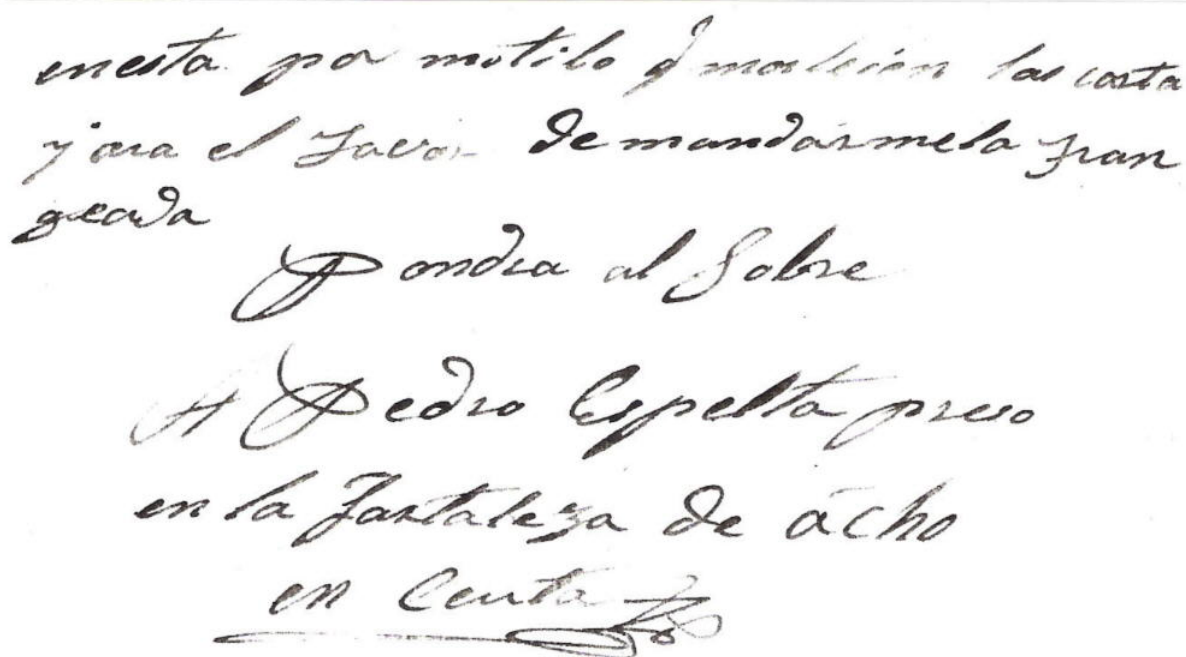 enesta por motibo q las carta
y ara el Favor de mandarmela fran
geada
Pondra al Sobre
A Pedro Espelta preso
en la Fortaleza de acho
en Ceuta